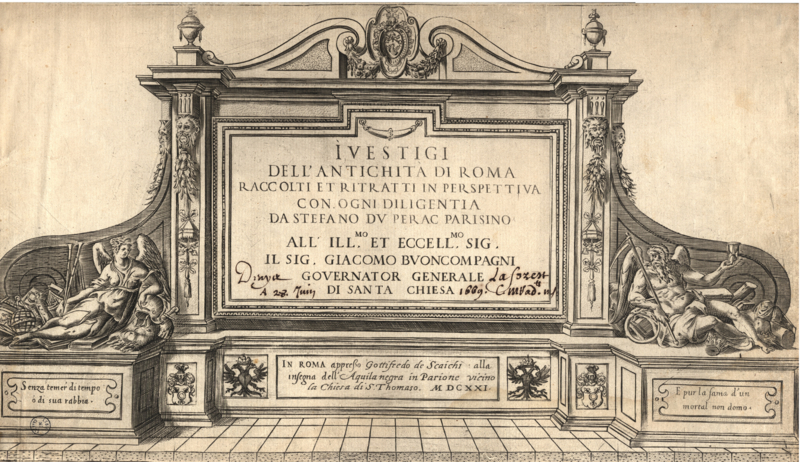 I VESTIGI
DELL'ANTICHITA DI ROMA
RACCOLTI ET RITRATTI IN PERSPETTIVA
CON OGNI DILIGENTIA
DA STEFANO DV PERAC PARISINO
ALL' ILL.MO ET ECCELL.MO SIG.
IL SIG. GIACOMO BVONCOMPAGNI
GOVERNATOR GENERALE
A 28. Juin DI SANTA CHIESA 1669
IN ROMA appresso Gottifredo de Scaichi alla
insegna dell'Aquila negra in Parione vicino
la Chiesa di S. Thomaso. M DCXXI
Senza temer di tempo
ò di sua rabbia.
E pur la fama d'un
mortal non domo.